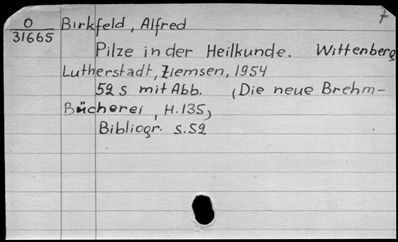 O Birkfeld, Alfred
31665
Pilze in der Heilkunde. Wittenberg
Lutherstadt, Ziemsen, 1954
52 S mit Abb. (Die neue Brehm-
Bücherei, H.135)
Bibliogr. S.52